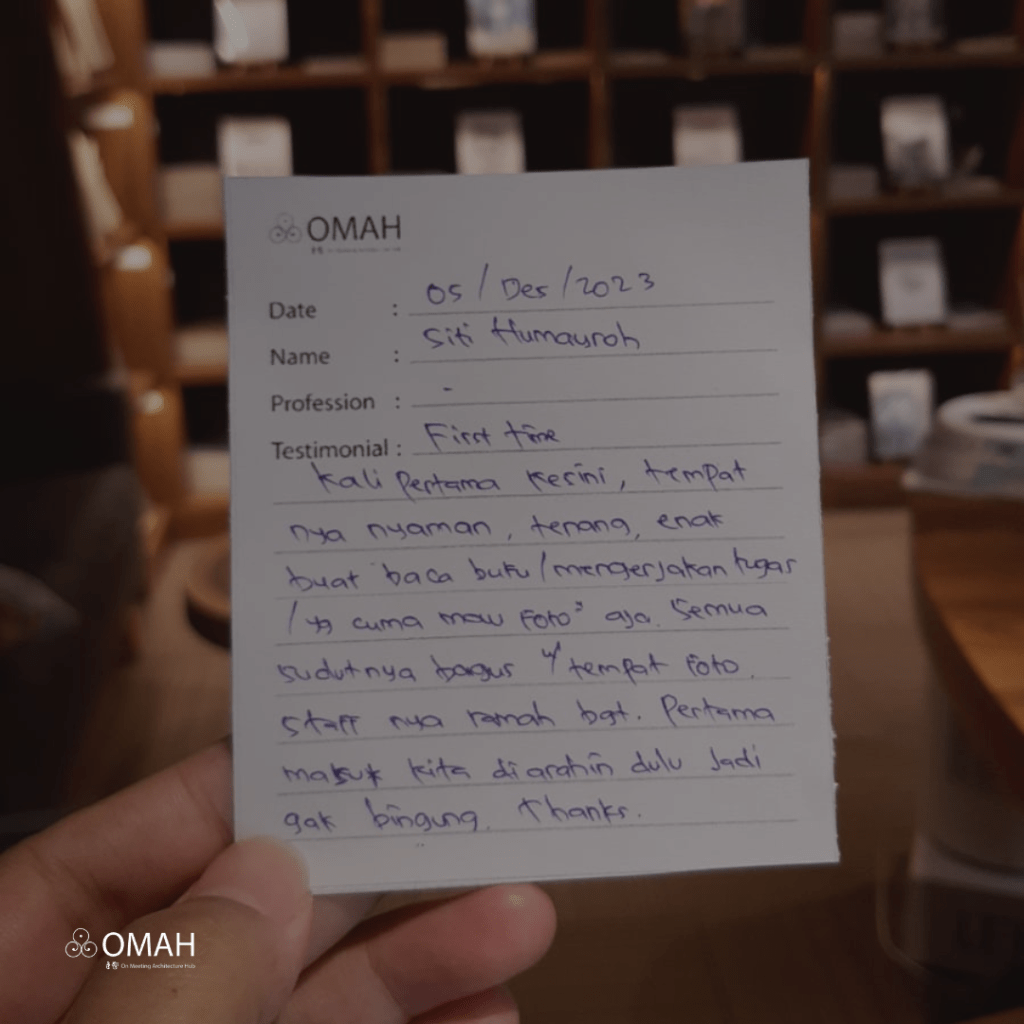 OMAH
Date : 05 / Des / 2023
Name : Siti Humayroh
Profession : -
Testimonial : First time
kali pertama kesini, tempat
nya nyaman, tenang, enak
buat baca buku/mengerjakan tugas
/yg cuma mau foto² aja. Semua
sudutnya bagus u/ tempat foto.
Staff nya ramah bgt. Pertama
masuk kita diarahin dulu Jadi
gak bingung. Thanks.
OMAH
On Meeting Architecture Hub